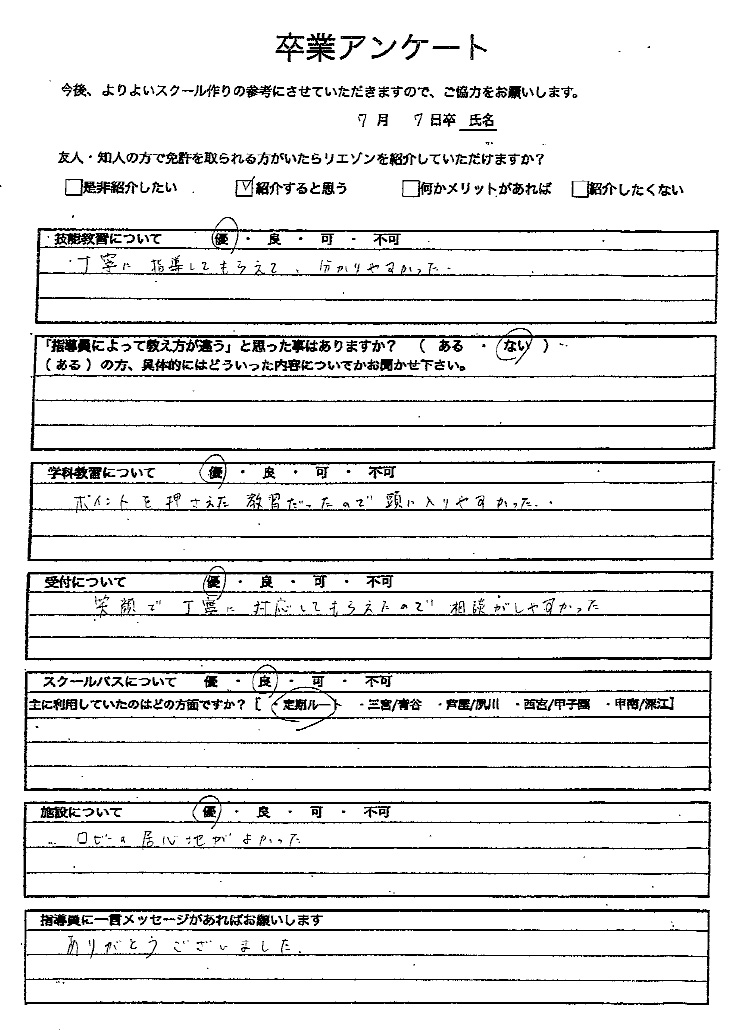 卒業アンケート
今後、よりよいスクール作りの参考にさせていただきますので、ご協力をお願いします。
7月 7日卒 氏名
友人・知人の方で免許を取られる方がいたらリエゾンを紹介していただけますか？
□是非紹介したい ☑紹介すると思う □何かメリットがあれば □紹介したくない
技能教習について 優 ・ 良 ・ 可 ・ 不可
丁寧に指導してもらえて、分かりやすかった。
「指導員によって教え方が違う」と思った事はありますか？ （ ある ・ ない ）
（ ある ）の方、具体的にはどういった内容についてかお聞かせ下さい。
学科教習について 優 ・ 良 ・ 可 ・ 不可
ポイントを押さえた教習だったので頭に入りやすかった。
受付について 優 ・ 良 ・ 可 ・ 不可
笑顔で丁寧に対応してもらえたので相談がしやすかった
スクールバスについて 優 ・ 良 ・ 可 ・ 不可
主に利用していたのはどの方面ですか？［ ・定期ルート ・三宮/青谷 ・芦屋/夙川 ・西宮/甲子園 ・甲南/深江］
施設について 優 ・ 良 ・ 可 ・ 不可
ロビーの居心地がよかった
指導員に一言メッセージがあればお願いします
ありがとうございました。